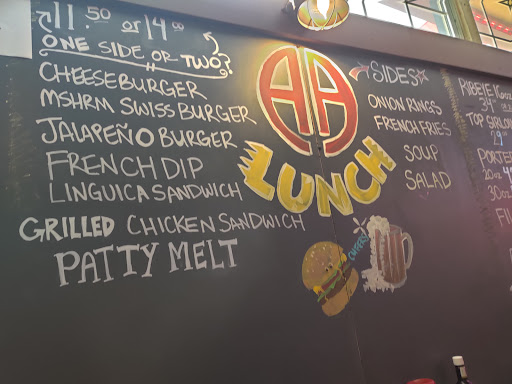 11.50 or 14.00
ONE SIDE OR TWO?
CHEESEBURGER
MSHRM SWISS BURGER
JALAPEÑO BURGER
FRENCH DIP
LINGUICA SANDWICH
GRILLED CHICKEN SANDWICH
PATTY MELT
AA
LUNCH
CHEERS!
SIDES
ONION RINGS
FRENCH FRIES
SOUP
SALAD
RIBEYE 16oz
TOP SIRLOIN
PORTE
20oz
30oz